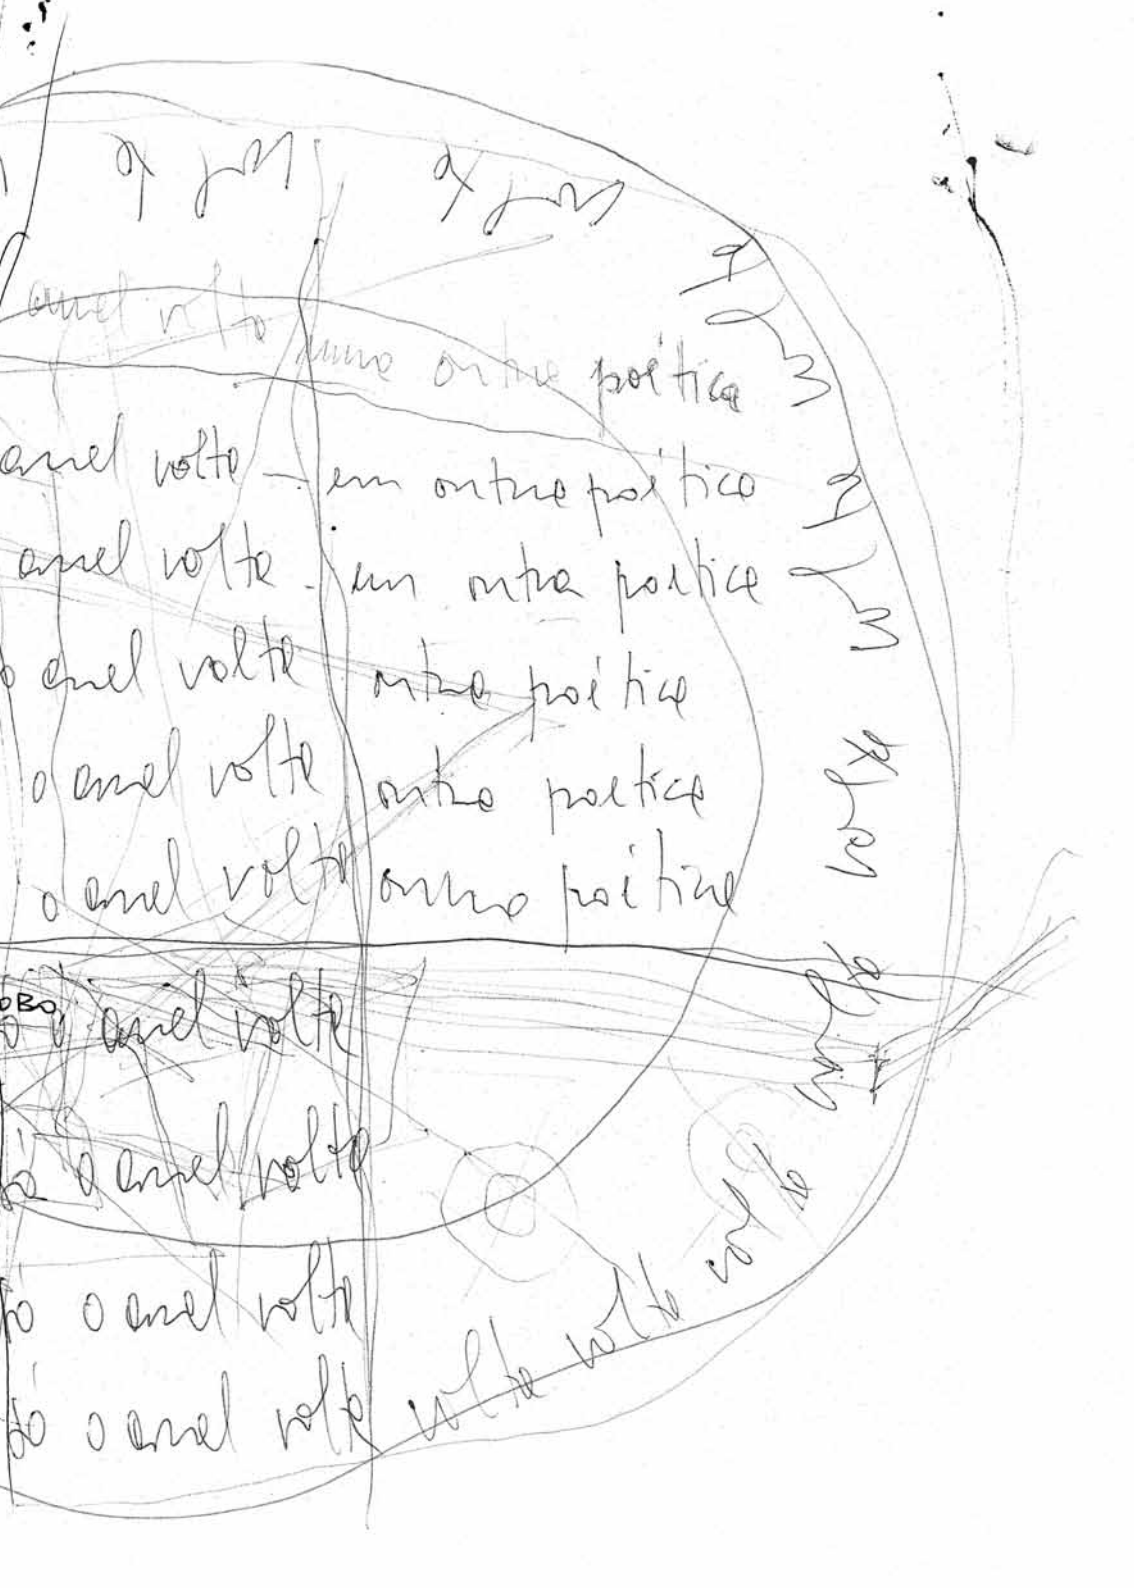 anel volta numa outra poética
anel volta - em outra poética
anel volta - em outra poética
o anel volta outra poética
o anel volta outra poética
o anel volta outra poética
OBO
o anel volta
só o anel volta
só o anel volta
só o anel volta
volta volta volta volta volta volta volta volta volta